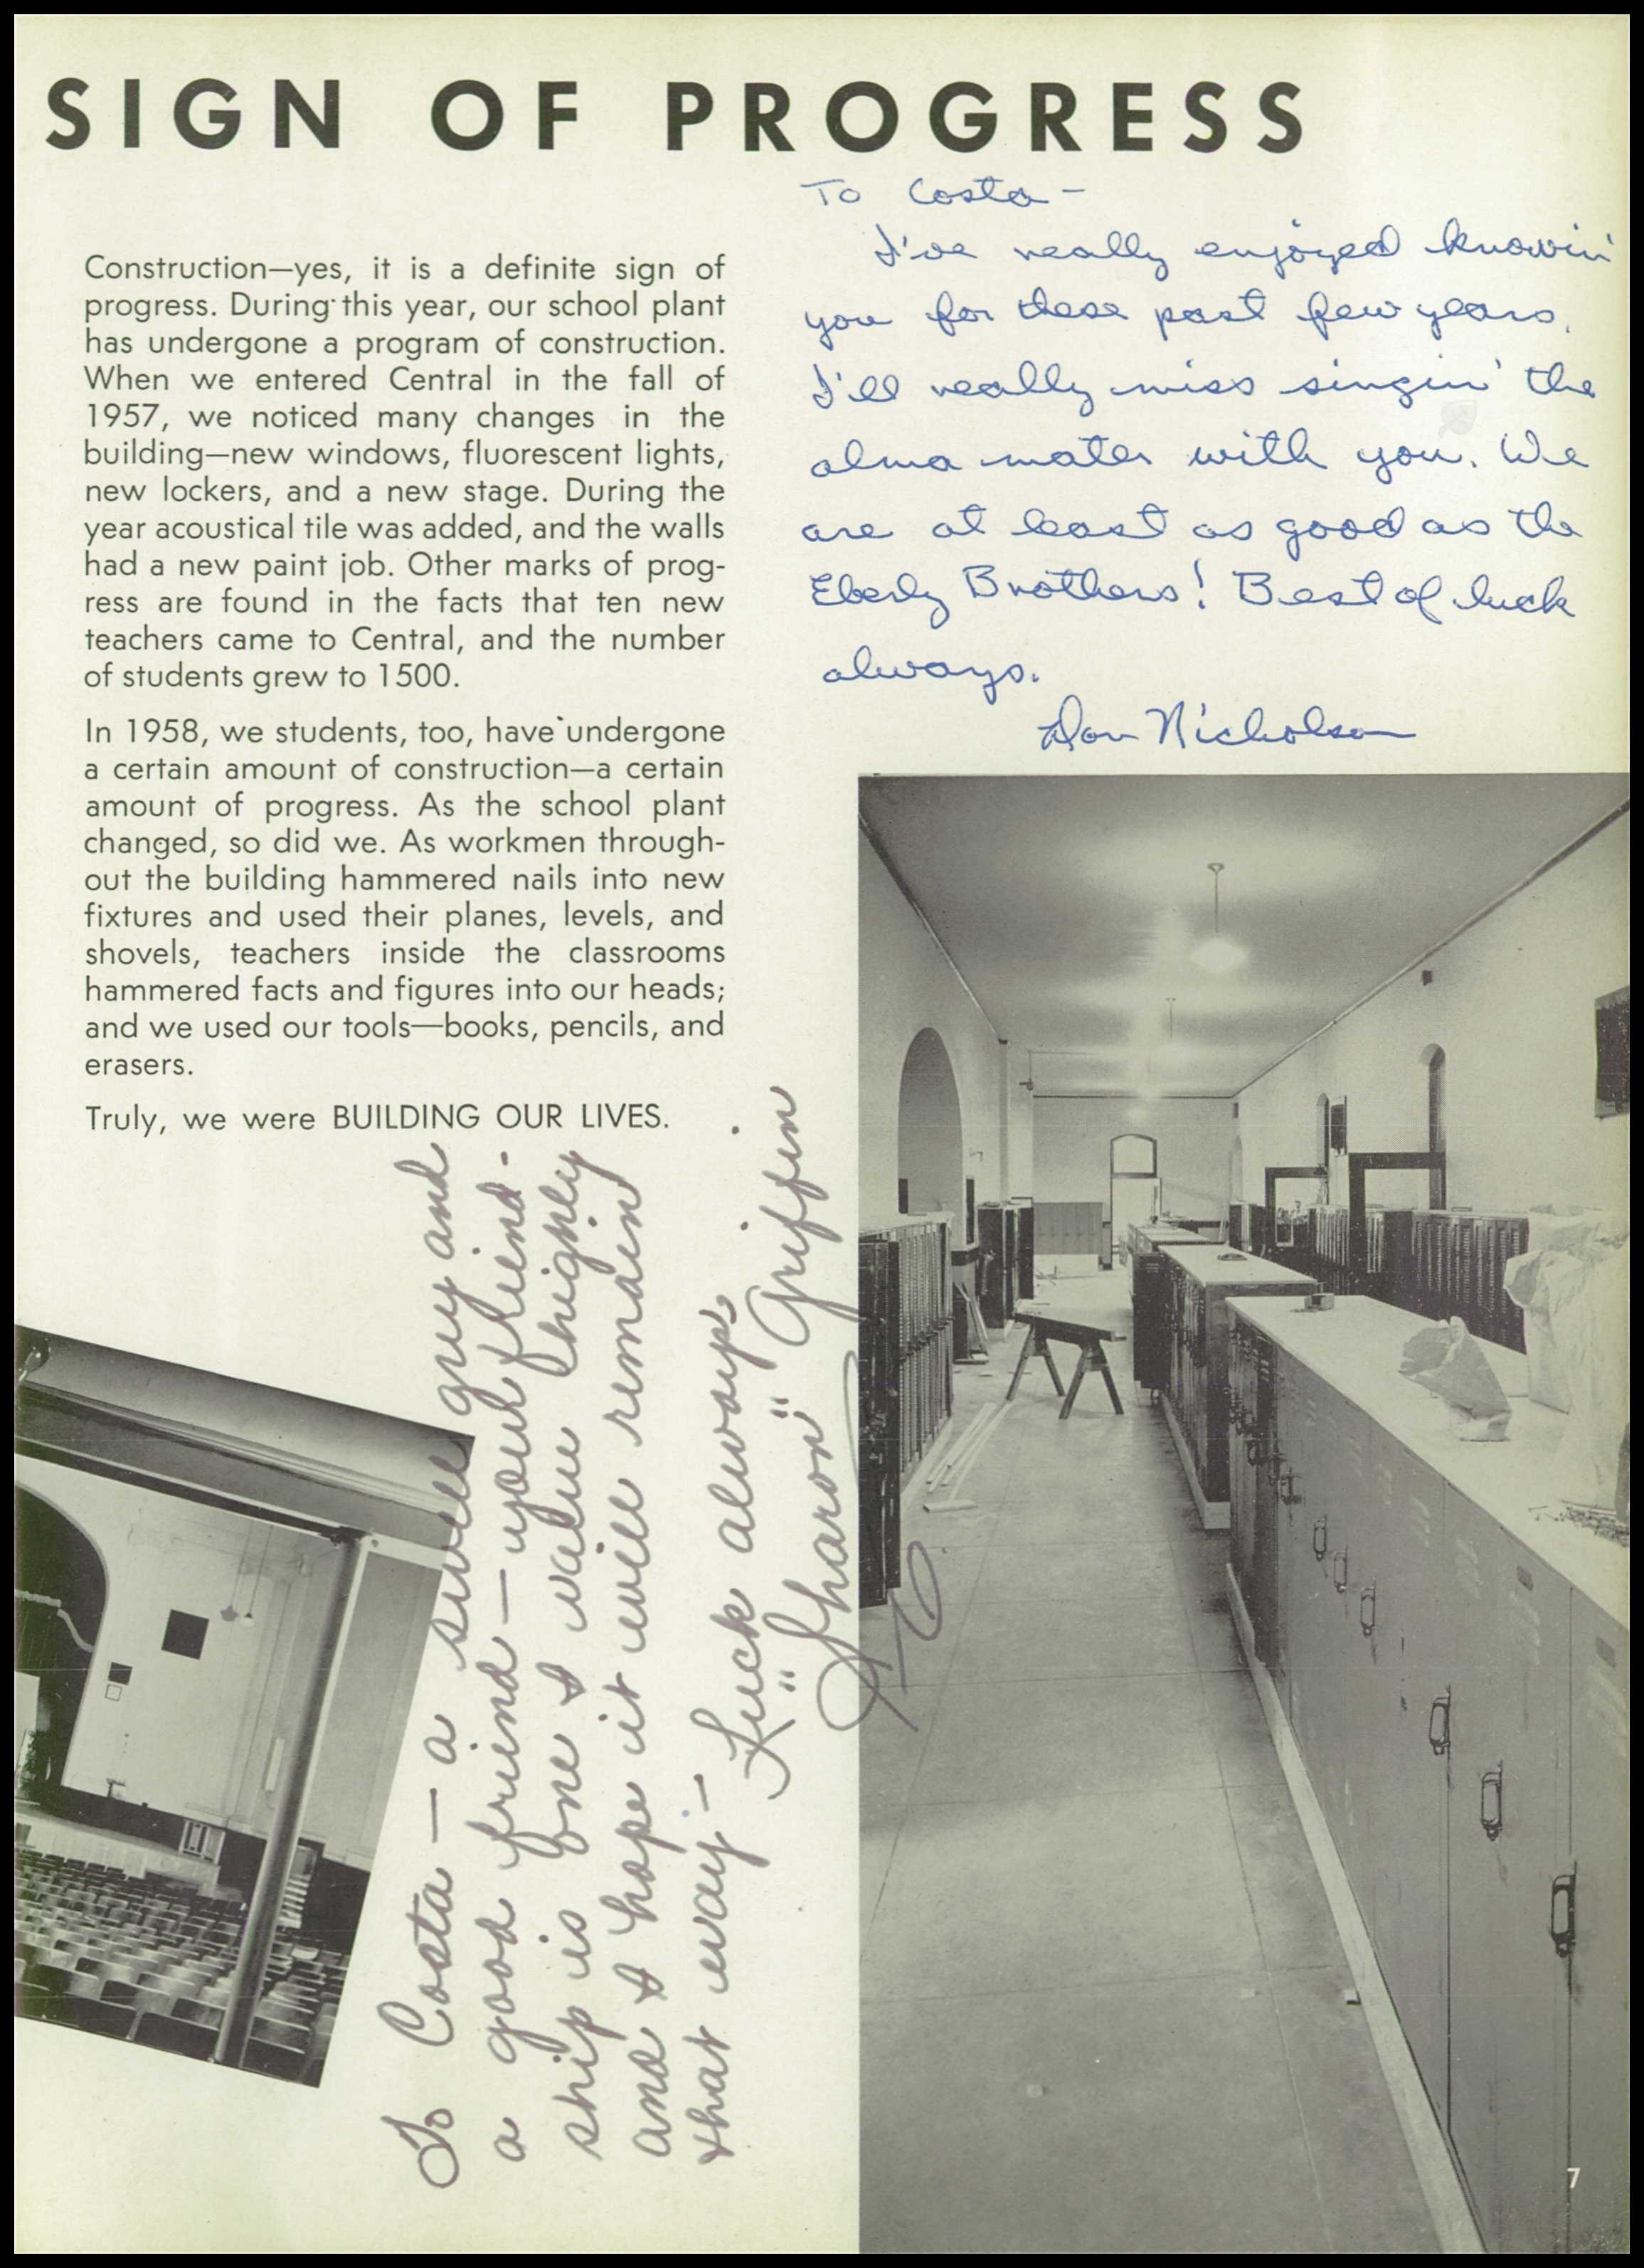 SIGN OF PROGRESS
Construction—yes, it is a definite sign of
progress. During this year, our school plant
has undergone a program of construction.
When we entered Central in the fall of
1957, we noticed many changes in the
building—new windows, fluorescent lights,
new lockers, and a new stage. During the
year acoustical tile was added, and the walls
had a new paint job. Other marks of prog-
ress are found in the facts that ten new
teachers came to Central, and the number
of students grew to 1500.
In 1958, we students, too, have undergone
a certain amount of construction—a certain
amount of progress. As the school plant
changed, so did we. As workmen through-
out the building hammered nails into new
fixtures and used their planes, levels, and
shovels, teachers inside the classrooms
hammered facts and figures into our heads;
and we used our tools—books, pencils, and
erasers.
Truly, we were BUILDING OUR LIVES.
To Costa -
I've really enjoyed knowin'
you for these past few years.
I'll really miss singin' the
alma mater with you. We
are at least as good as the
Eberly Brothers! Best of luck
always.
Don Nicholson
To Costa — a swell guy and
a good friend — your friend-
ship is one I value highly
and I hope it will remain
that way — Luck always
"Sharon" Griffin
7